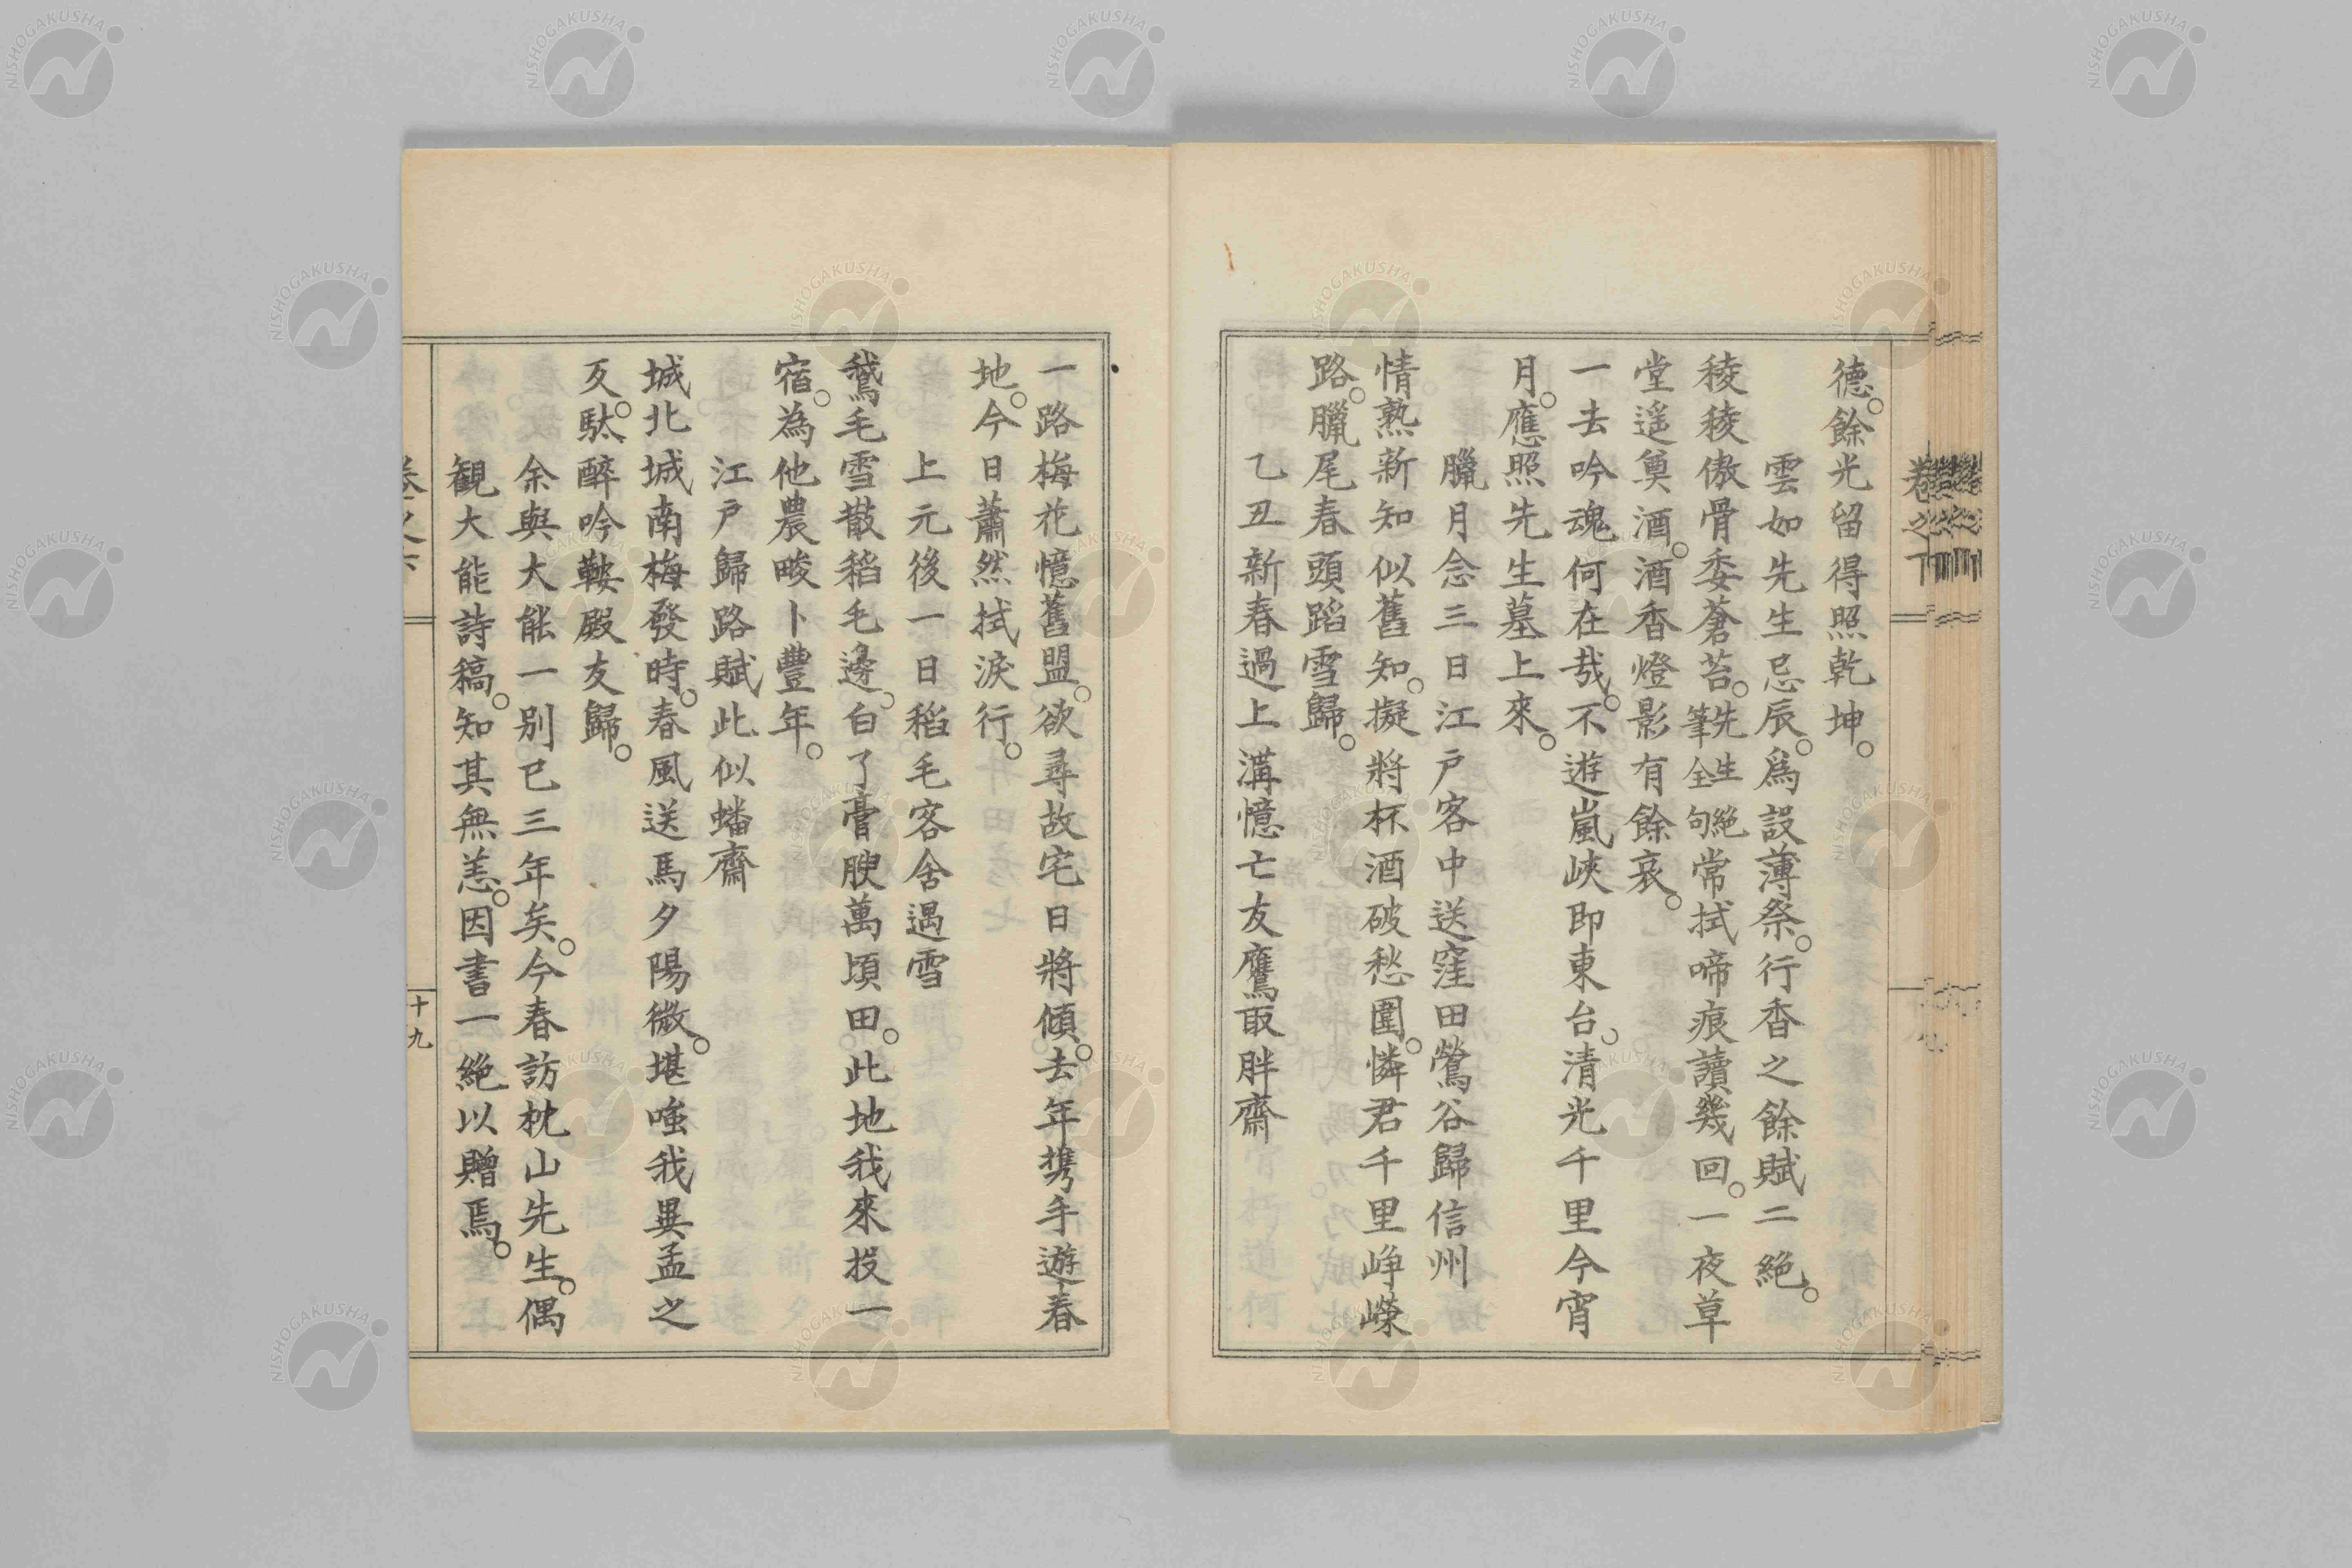 德。餘光留得照乾坤。
雲如先生忌辰。爲設薄祭。行香之餘賦二絕。
稜稜傲骨委蒼苔。先生絕筆全句常拭啼痕讀幾回。一夜草
堂遙奠酒。酒香燈影有餘哀。
一去吟魂何在哉。不遊嵐峽即東台。清光千里今宵
月。應照先生墓上來。
臘月念三日江戶客中送窪田鶯谷歸信州
情熟新知似舊知。擬將杯酒破愁圍。憐君千里崢嶸
路。臘尾春頭蹈雪歸。
乙丑新春過上溝憶亡友鷹取胖齋
一路梅花憶舊盟。欲尋故宅日將傾。去年携手遊春
地。今日蕭然拭淚行。
上元後一日稻毛客舍遇雪
鵞毛雪散稻毛邊。白了膏腴萬頃田。此地我來投一
宿。為他農畯卜豐年。
江戶歸路賦此似蟠齋
城北城南梅發時。春風送馬夕陽微。堪嗤我異孟之
反。馱醉吟鞍殿友歸。
余與大能一別已三年矣。今春訪枕山先生。偶
観大能詩稿。知其無恙。因書一絕以贈焉。
卷之下
十九
NISHOGAKUSHA